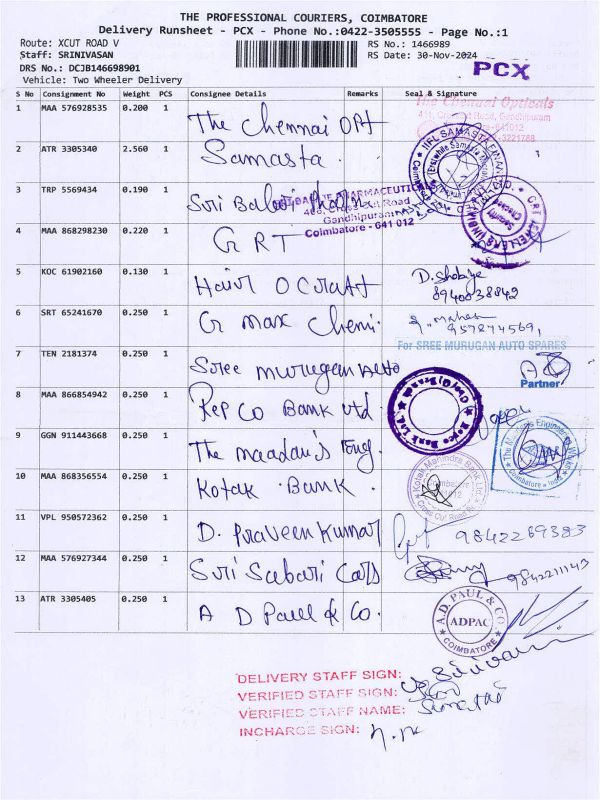 THE PROFESSIONAL COURIERS, COIMBATORE
Delivery Runsheet - PCX - Phone No.:0422-3505555 - Page No.:1
Route: XCUT ROAD V RS No.: 1466989
Staff: SRINIVASAN RS Date: 30-Nov-2024
DRS No.: DCJB146698901 PCX
Vehicle: Two Wheeler Delivery
S No Consignment No Weight PCS Consignee Details Remarks Seal & Signature
The Chennai Opticals
1 MAA 576928535 0.200 1 The Chennai OPt
2 ATR 3305340 2.560 1 Samasta.
3 TRP 5569434 0.190 1 Sri Balaji
PHARMACEUTICALS
Gandhipuram
Coimbatore - 641 012
4 MAA 868298230 0.220 1 GRT
5 KOC 61902160 0.130 1 Hair O Craft D. Shobiya
8940038842
6 SRT 65241670 0.250 1 G max Chemi. 957874569,
For SREE MURUGAN AUTO SPARES
7 TEN 2181374 0.250 1 Sree murugan Auto
Partner
8 MAA 866854942 0.250 1 Rep Co Bank Ltd
9 GGN 911443668 0.250 1 The maadan's Eng.
10 MAA 868356554 0.250 1 Kotak Bank.
11 VPL 950572362 0.250 1 D. Praveen Kumar 9842269383
12 MAA 576927344 0.250 1 Sri Sabari Cars 9842211143
13 ATR 3305405 0.250 1 A D Paul & Co.
A.D. PAUL & CO
ADPAC
COIMBATORE
DELIVERY STAFF SIGN:
VERIFIED STAFF SIGN:
VERIFIED STAFF NAME:
INCHARGE SIGN: